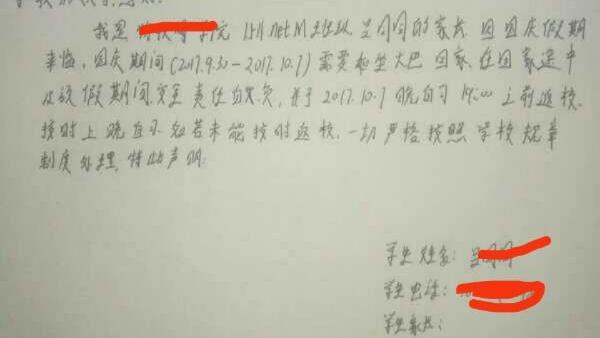 我是 学院 班级 同学的家长 因国庆假期
来临,国庆期间(2017.9.30-2017.10.7)需要乘坐大巴回家,在回家途中
及该假期期间,安全责任自负,并于2017.10.7晚自习19:00之前返校,
按时上晚自习,如若未能按时返校,一切严格按照学校规章
制度处理,特此声明.
学生姓名:
学生电话:
学生家长: